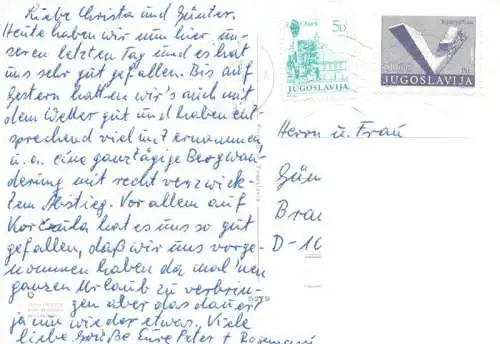 Liebe Christa und Günter.
Heute haben wir nun hier un-
seren letzten Tag und es hat
uns sehr gut gefallen. Bis auf
Gestern hatten wir's auch mit
dem Wetter gut und haben ent-
sprechend viel unternommen,
u.a. eine ganztägige Bergwan-
derung mit recht verzwick-
tem Abstieg. Vor allem auf
Korčula hat es uns so gut
gefallen, daß wir uns vorge-
nommen haben da mal 'nen
ganzen Urlaub zu verbrin-
gen aber das dauert
ja nun wieder etwas. Viele
liebe Grüße Eure Peter + Rosemarie
Osijek
5D
JUGOSLAVIJA
JUGOSLAVIJA
Herrn u. Frau
Gün
Brau
D-10
5279